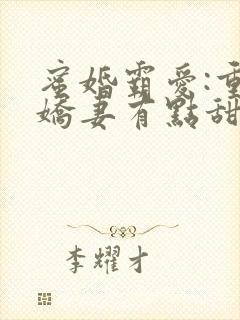 蜜婚霸愛:
嬌妻有點甜
李耀才